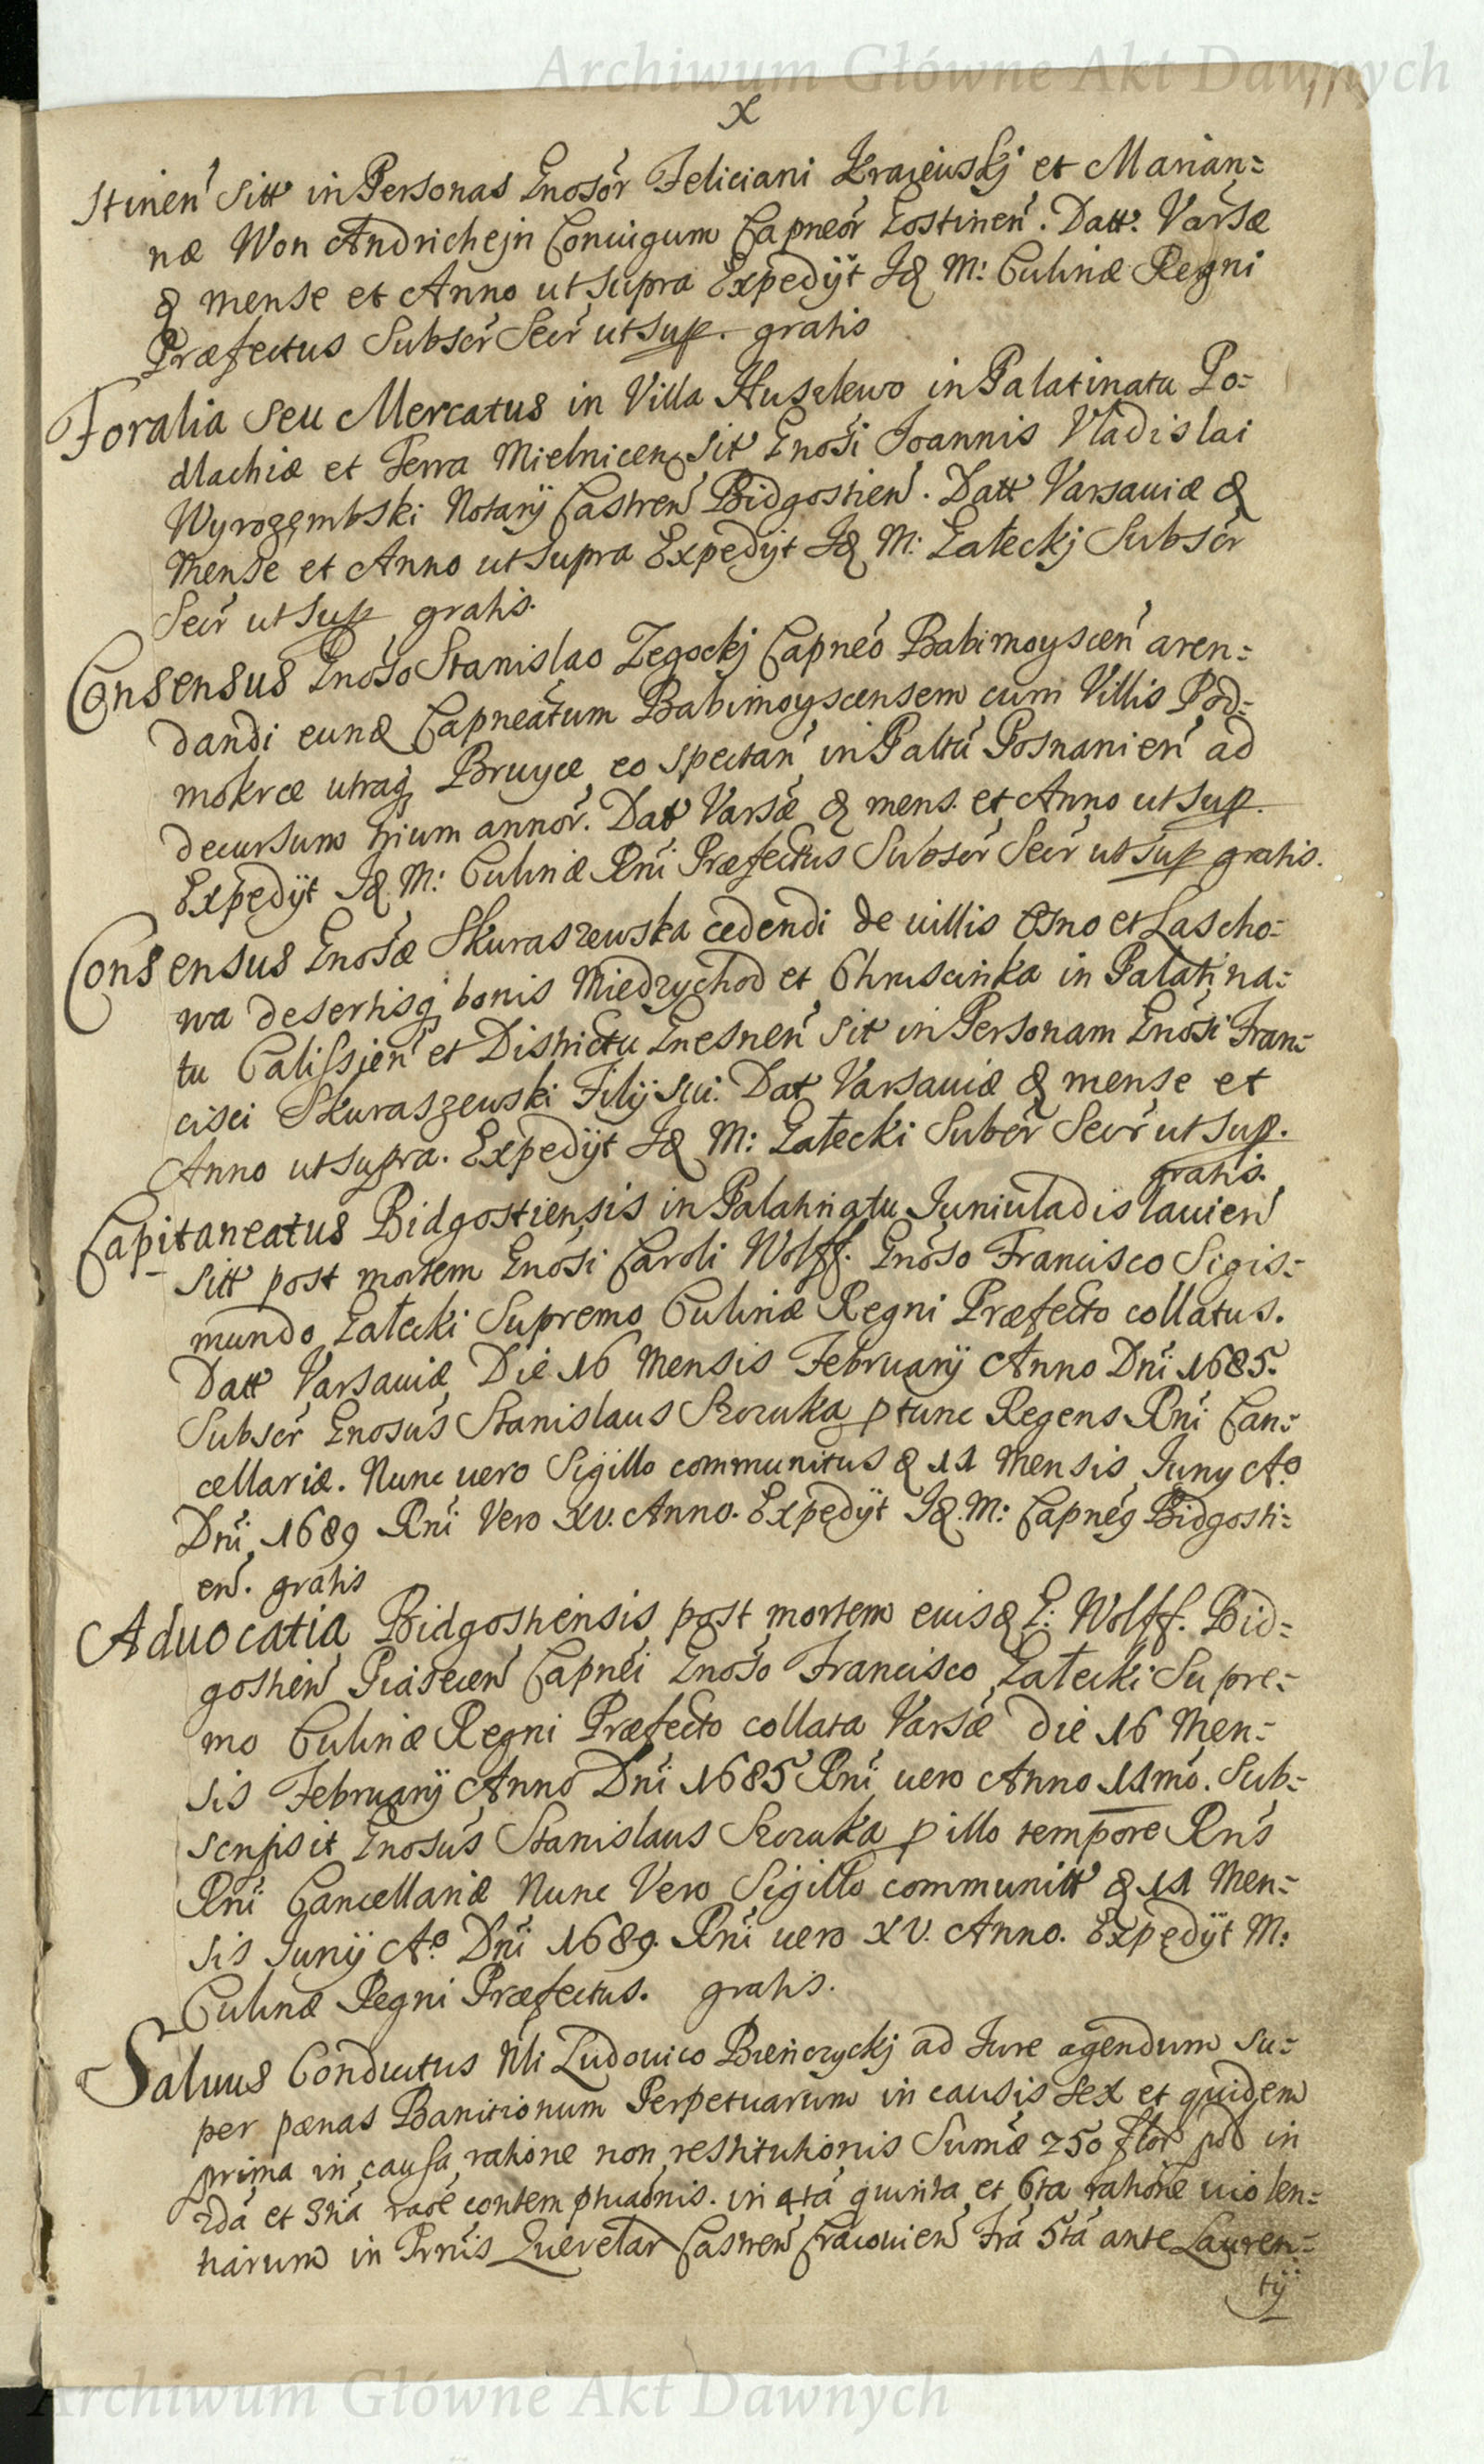 Archiwum Główne Akt Dawnych
x
stinen̄ sitt in Personas Gnosor̄ Feliciani Kraiewskj et Marian:
næ Won Andrichejn Coniugum Capneor̄ Gostinen̄. Datt: Varsæ
& mense et Anno ut supra Expedijt I& M: Culinæ Regni
Præfectus Subscr̄ Secr̄ ut sup. gratis
Foralia seu Mercatus in Villa Huszlewo in Palatinatu Po:
dlachiæ et Terra Mielnicen sit Gnosi Joannis Vladislai
Wyrozęmbski Notarij Castren̄ Bidgostien̄. Datt Varsauiæ &
mense et Anno ut supra Expedijt I& M: Gałeckj Subscr̄
Secr̄ ut sup gratis.
Consensus Gnoso Stanislao Zegockj Capneo Babimoyscen̄ aren:
dandi eund Capneatum Babimoyscensem cum Villis Pod:
mokrce utraq Bruyce eo spectan̄ in Paltu Posnanien̄ ad
decursum trium annor̄. Dat Varsæ & mens. et Anno ut sup.
Expedijt I& M: Culinæ Rni Præfectus Subscr̄ Secr̄ ut sup gratis.
Consensus Gnosæ Skuraszewska cedendi de uillis Osno et Lascho:
wa desertisq bonis Miedzychod et Chruscinka in Palatina:
tu Calissien̄ et Districtu Gnesnen̄ sit in Personam Gnosi Fran:
cisci Skuraszewski Filij sui. Dat Varsauiæ & mense et
Anno ut supra. Expedijt I& M: Gałecki Subcr̄ Secr̄ ut sup.
gratis.
Capitaneatus Bidgostiensis in Palatinatu Juniuladislauien̄
sitt post mortem Gnosi Caroli Wolff. Gnoso Francisco Sigis:
mundo Gałecki Supremo Culinæ Regni Præfecto collatus.
Datt Varsauiæ Die 16 Mensis Februarij Anno Dni 1685.
Subscr̄ Gnosus Stanislaus Szczuka p tunc Regens Rni Can:
cellariæ. Nunc uero Sigillo communitus & 11 Mensis Juny Aº
Dni 1689 Rni Vero XV. Anno. Expedijt I&.M: Capneg Bidgosti:
en̄. gratis
Aduocatia Bidgostiensis post mortem euisd G: Wolff. Bid:
gostien̄ Piasecen̄ Capnei Gnoso Francisco Gałecki Supre:
mo Culinæ Regni Præfecto collata Varsæ die 16 Men:
sis Februarij Anno Dni 1685 Rni uero Anno 11mo. Sub:
scripsit Gnosus Stanislaus Szczuka p illo tempore Rns
Rni Cancellariæ Nunc Vero Sigillo communitt & 11 Men:
sis Junij Aº Dni 1689. Rni uero XV. Anno. Expedijt M:
Culinæ Regni Præfectus. gratis.
Saluus Conductus Nli Ludouico Bieńczyckj ad Jure agendum su:
per pænas Banitionum Perpetuarum in causis sex et quidem
prima in causa ratione non restitutionis Sumæ 250 flor pol in
2da et 3tia raoe contemptuaonis. in 4ta quinta et 6ta ratione uiolen:
tiarum in Prnis Querelar Castren̄ Cracouien̄ Fra 5ta ante Lauren:
tij
Archiwum Główne Akt Dawnych